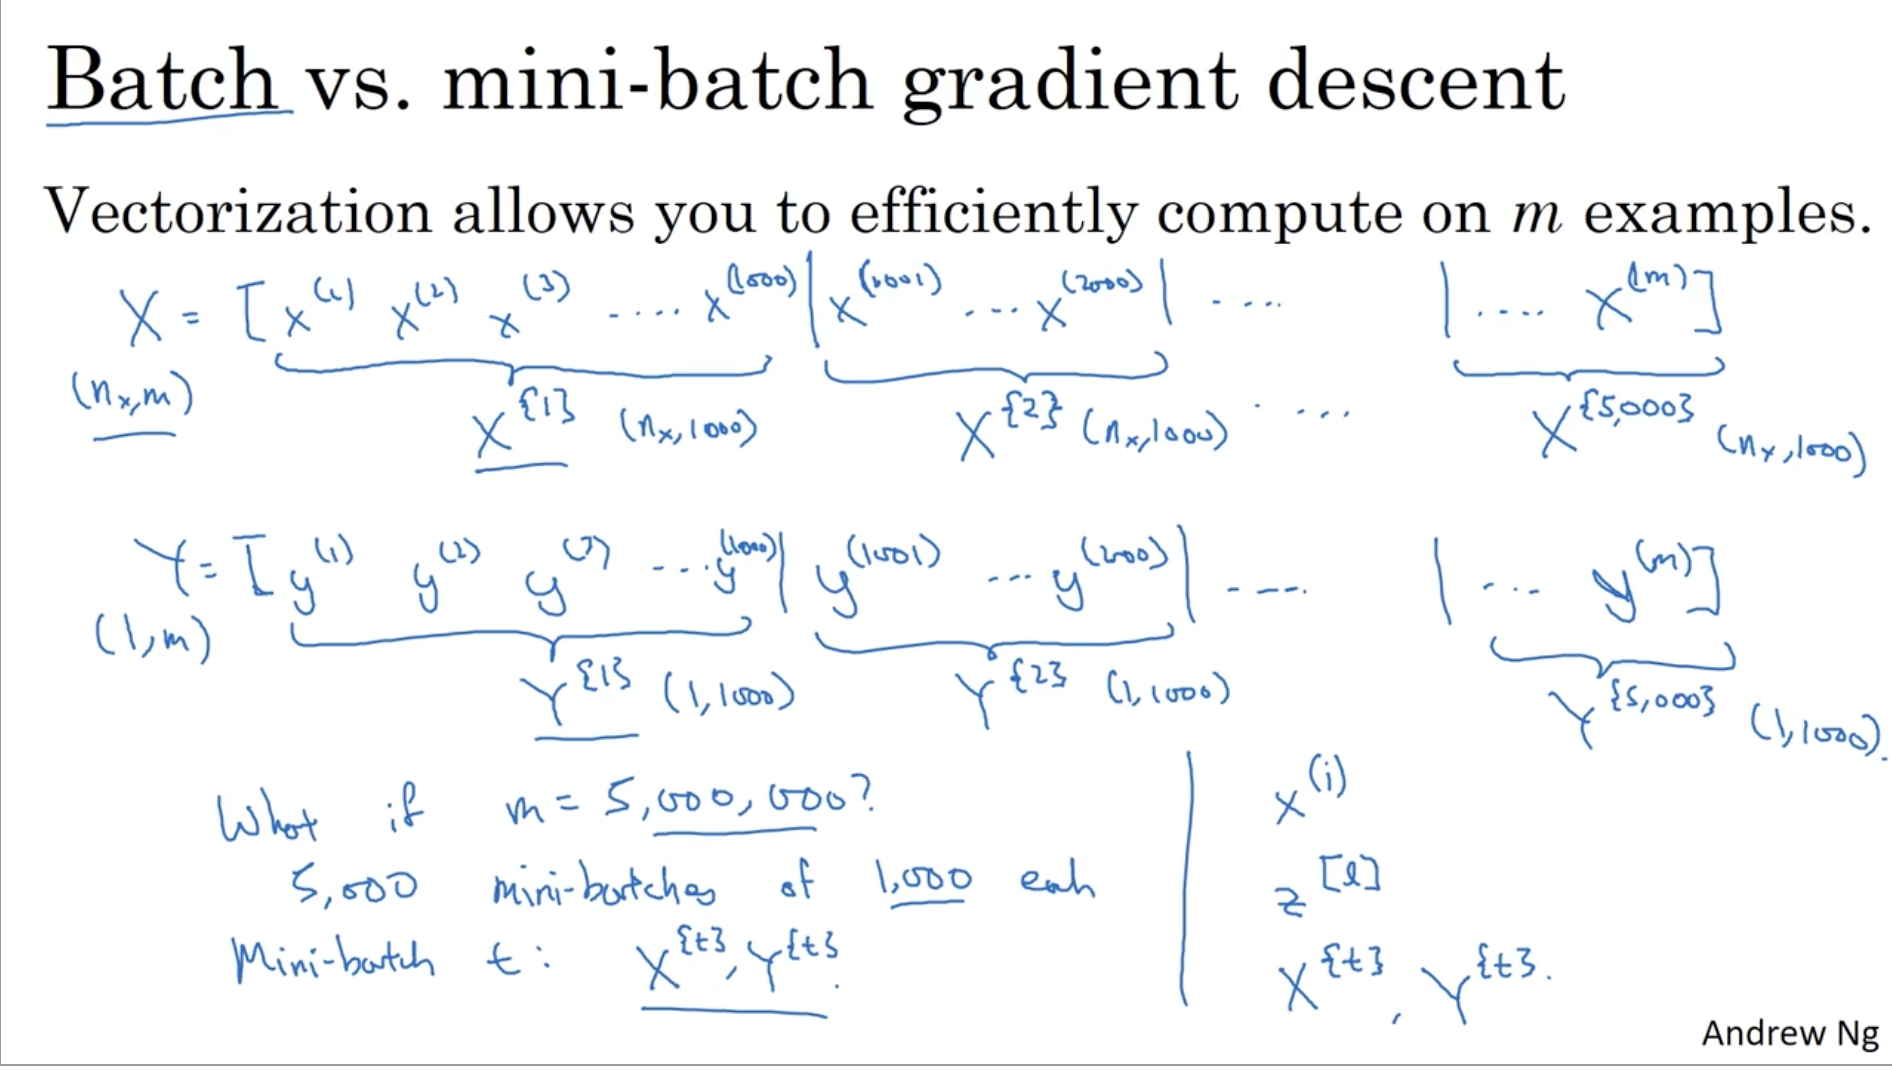 Batch vs. mini-batch gradient descent
Vectorization allows you to efficiently compute on m examples.
X = [x^(1) x^(2) x^(3) .... x^(1000) | x^(1001) ... x^(2000) | .... | .... x^(m)]
(n_x, m)
X^{1} (n_x, 1000) X^{2} (n_x, 1000) .... X^{5,000} (n_x, 1000)
Y = [y^(1) y^(2) y^(3) ... y^(1000) | y^(1001) ... y^(2000) | .... | ... y^(m)]
(1, m)
Y^{1} (1, 1000) Y^{2} (1, 1000) Y^{5,000} (1, 1000).
What if m = 5,000,000?
5,000 mini-batches of 1,000 each
Mini-batch t: X^{t}, Y^{t}.
x^(i)
z^[l]
X^{t}, Y^{t}.
Andrew Ng